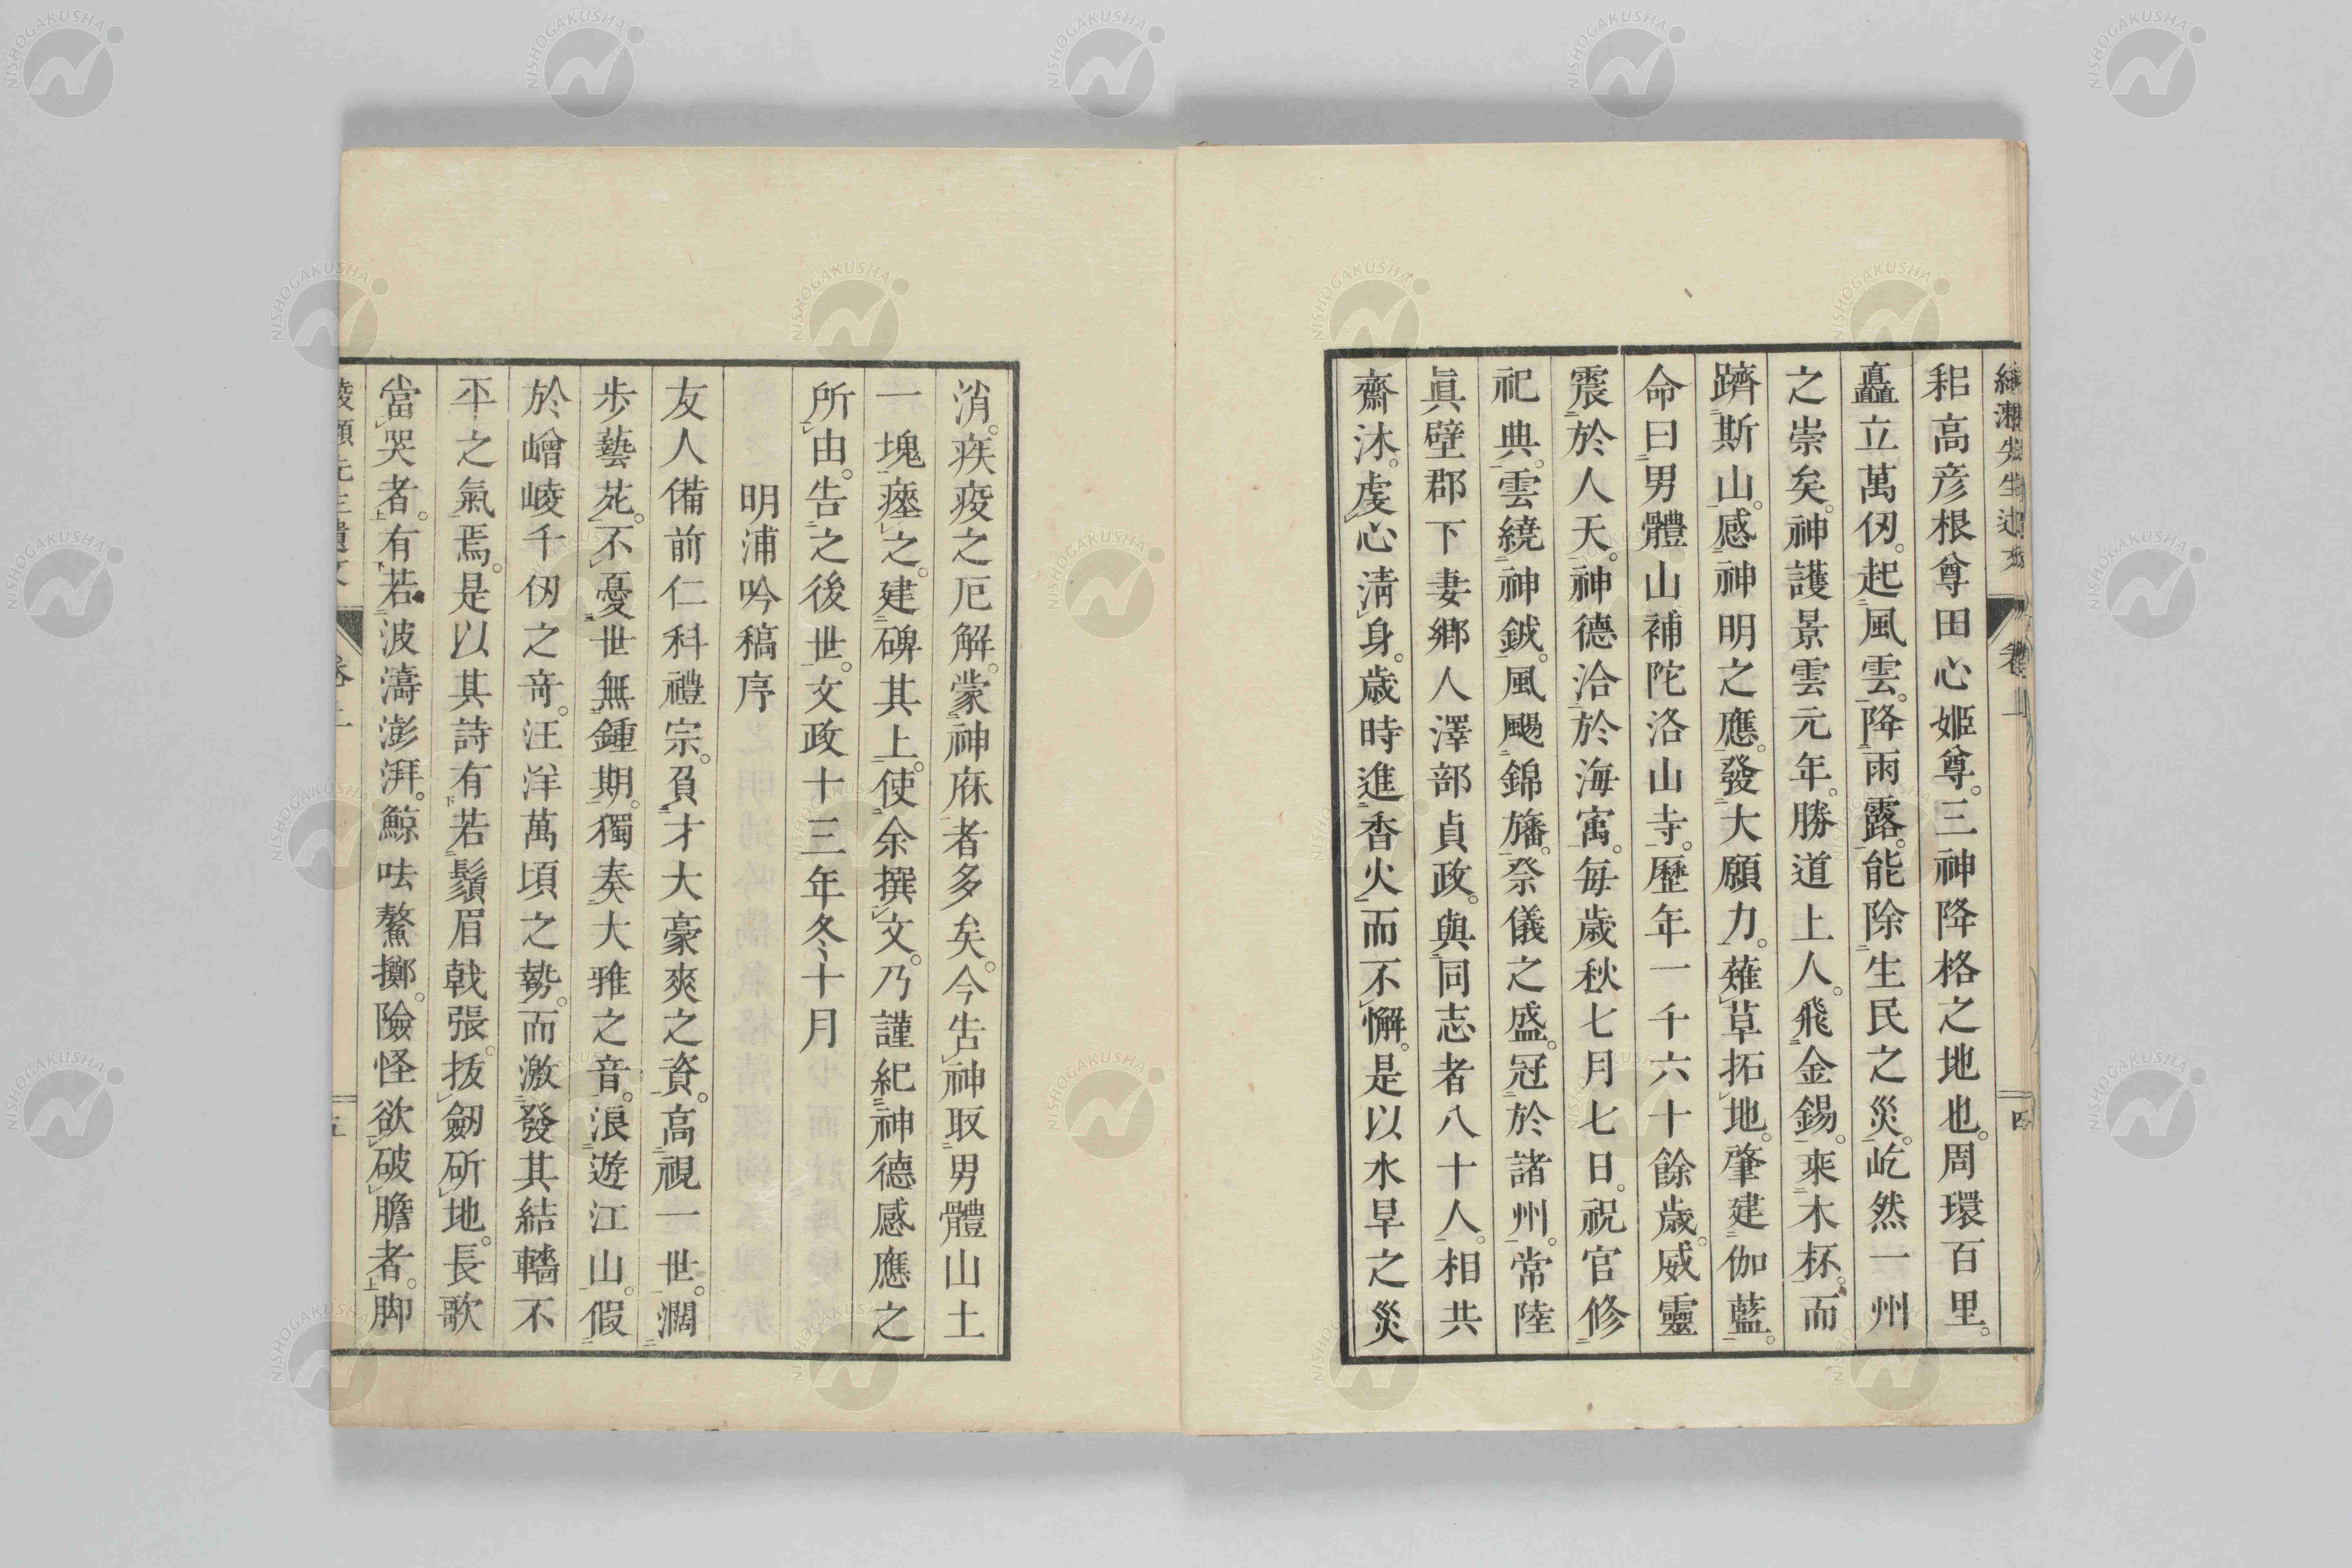 耜高彦根尊田心姬尊。三神降格之地也。周環百里。
矗立萬仞。起風雲。降雨露。能除生民之災。屹然一州
之崇矣。神護景雲元年。勝道上人。飛金錫。乘木杯。而
躋斯山。感神明之應。發大願力。薙草拓地。肇建伽藍。
命曰男體山補陀洛山寺。歷年一千六十餘歲。威靈
震於人天。神德洽於海寓。每歲秋七月七日。祝官修
祀典。雲繞神鉞。風颺錦旛。祭儀之盛。冠於諸州。常陸
眞壁郡下妻鄉人澤部貞政。與同志者八十人。相共
齋沐。虔心淸身。歲時進香火而不懈。是以水旱之災
消。疾疫之厄解。蒙神庥者多矣。今告神取男體山土
一塊瘞之。建碑其上。使余撰文。乃謹紀神德感應之
所由。告之後世。文政十三年冬十月
明浦吟稿序
友人備前仁科禮宗。負才大豪爽之資。高視一世。濶
步藝苑。不憂世無鍾期。獨奏大雅之音。浪遊江山。假
於嶒崚千仞之奇。汪洋萬頃之勢。而激發其結轖不
平之氣焉。是以其詩有若鬚眉戟張。拔劒斫地。長歌
當哭者。有若波濤澎湃。鯨呿鰲擲。險怪欲破膽者。脚
卷上
四
NISHOGAKUSHA